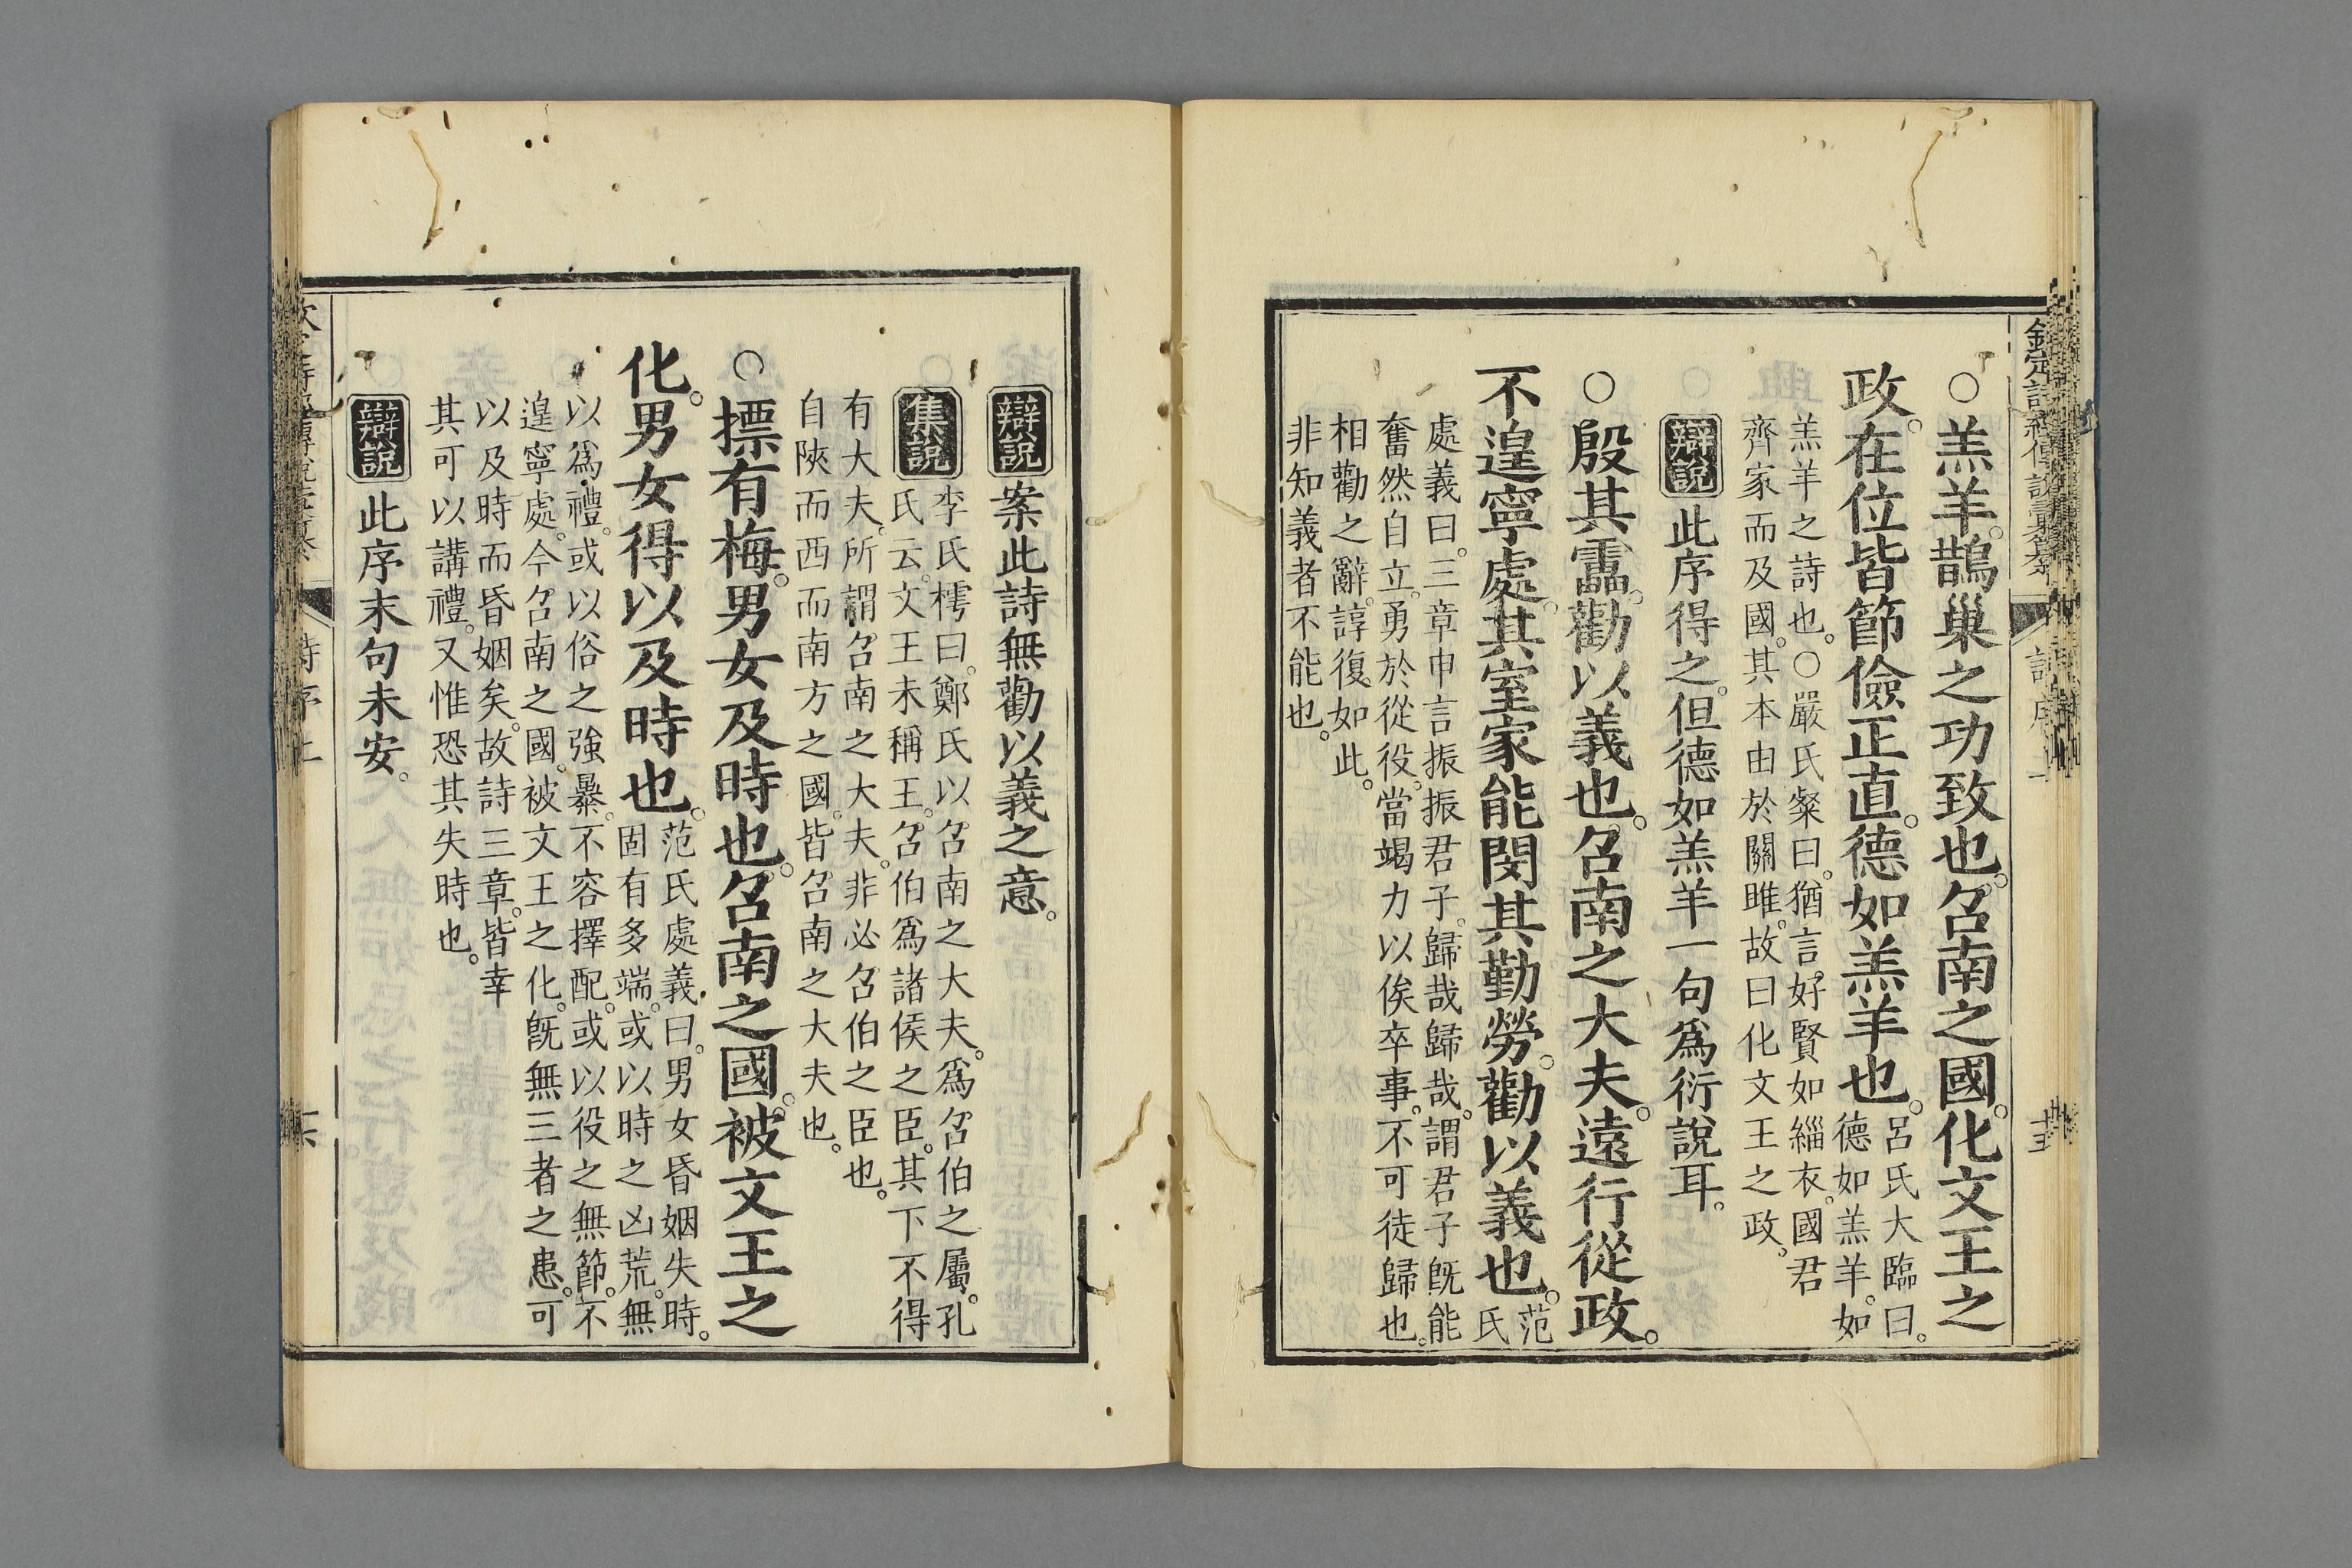 ○羔羊。鵲巢之功致也。召南之國。化文王之
政。在位皆節儉正直。德如羔羊也。呂氏大臨曰。
德如羔羊。如
羔羊之詩也。○嚴氏粲曰。猶言好賢如緇衣。國君
齊家而及國。其本由於關雎。故曰化文王之政。
辯說 此序得之。但德如羔羊一句爲衍說耳。
○殷其靁。勸以義也。召南之大夫。遠行從政。
不遑寧處。其室家能閔其勤勞。勸以義也。范
氏
處義曰。三章申言振振君子。歸哉歸哉。謂君子旣能
奮然自立。勇於從役。當竭力以俟卒事。不可徒歸也。
相勸之辭。諄復如此。
非知義者不能也。
辯說 案此詩無勸以義之意。
集說 李氏樗曰。鄭氏以召南之大夫。爲召伯之屬。孔
氏云。文王未稱王。召伯爲諸侯之臣。其下不得
有大夫。所謂召南之大夫。非必召伯之臣也。
自陝而西而南方之國。皆召南之大夫也。
○摽有梅。男女及時也。召南之國。被文王之
化。男女得以及時也。范氏處義曰。男女昏姻失時。
固有多端。或以時之凶荒。無
以爲禮。或以俗之強暴。不容擇配。或以役之無節。不
遑寧處。今召南之國。被文王之化。旣無三者之患。可
以及時而昏姻矣。故詩三章。皆幸
其可以講禮。又惟恐其失時也。
辯說 此序末句未安。